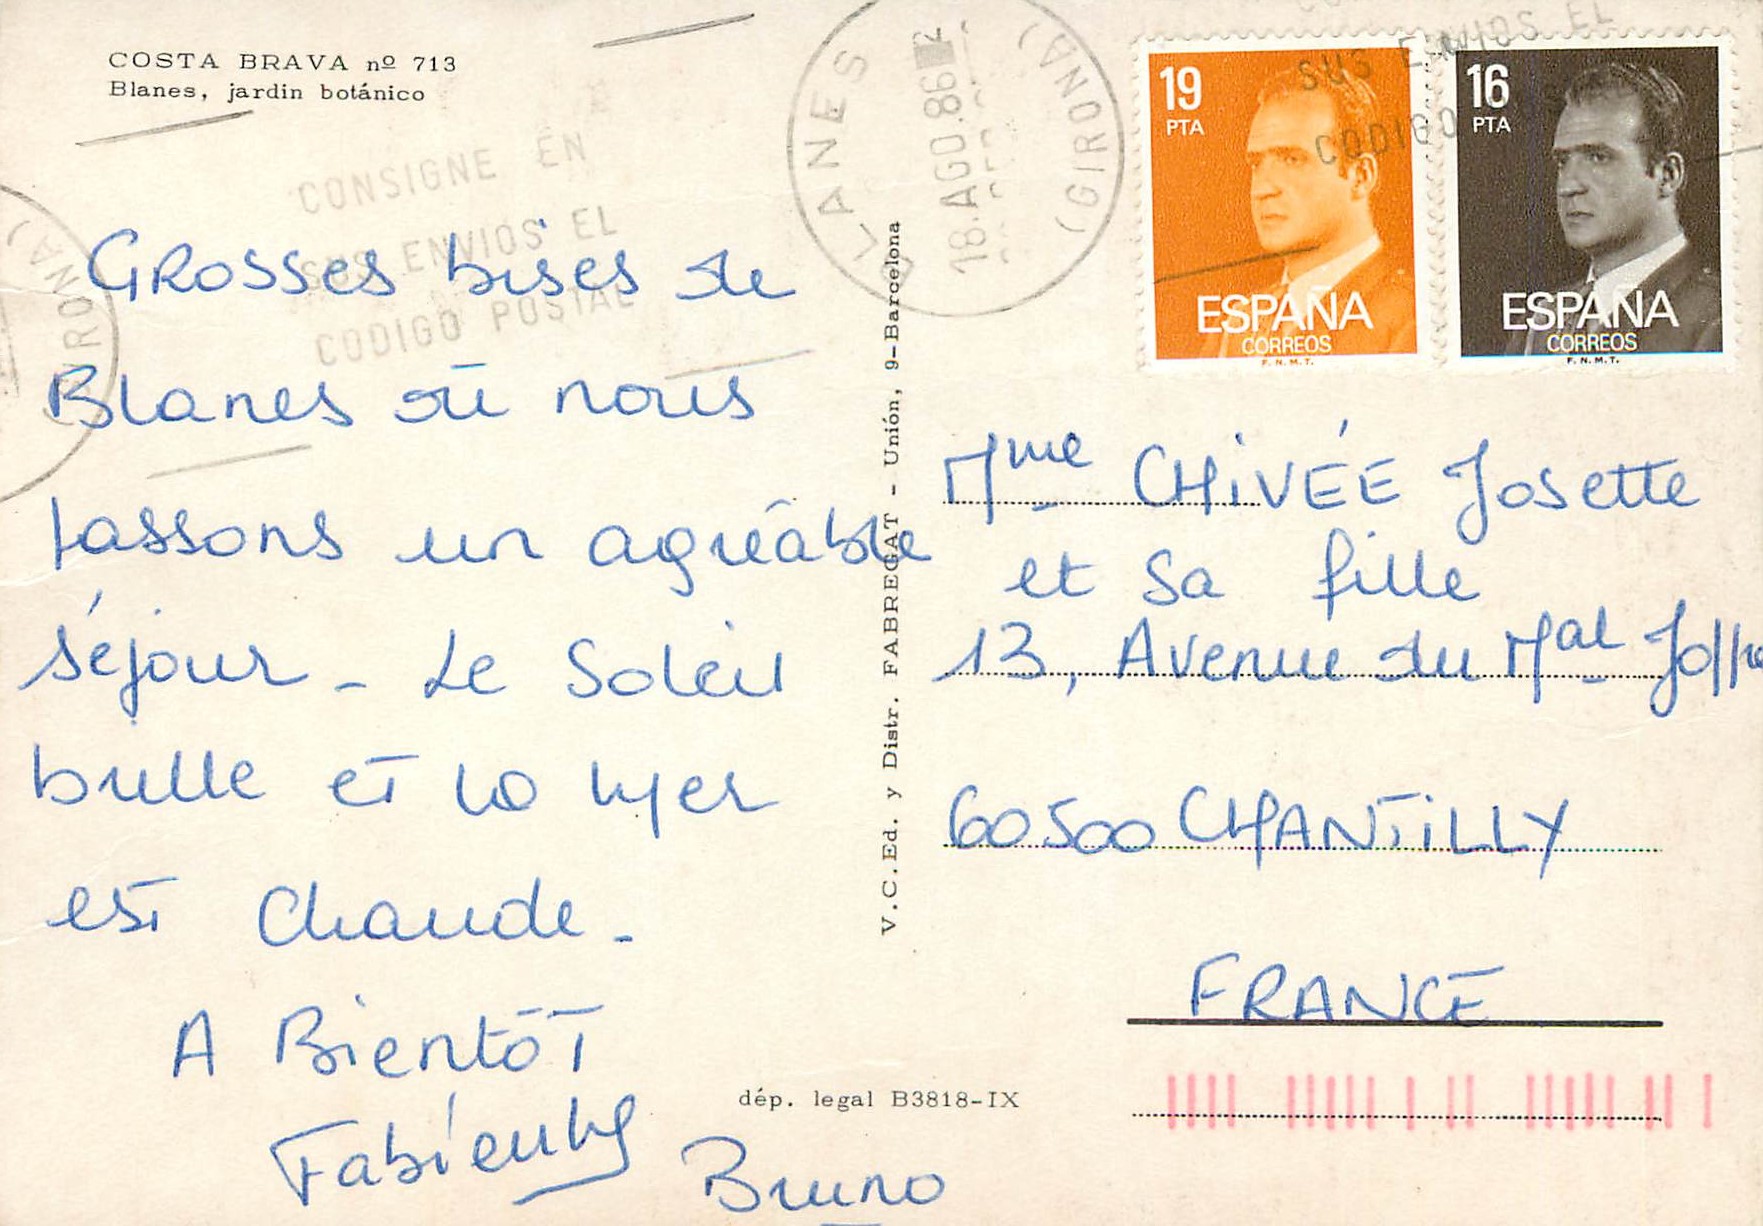 COSTA BRAVA nº 713
Blanes, jardin botánico
CONSIGNE EN
SUS ENVIOS EL
CODIGO POSTAL
GIRONA)
Grosses bises de
Blanes où nous
passons un agréable
séjour - Le Soleil
brille et la Mer
est Chaude -
A Bientôt
Bruno
V.C.Ed. y Distr. FABREGAT - Unión, 9-Barcelona
dép. legal B3818-IX
BLANES
18.AGO.86
(GIRONA)
SUS ENVIOS EL
CODIGO
19
PTA
ESPAÑA
CORREOS
F.N.M.T.
16
PTA
ESPAÑA
CORREOS
F.N.M.T.
Mme CHIVÉE Josette
et Sa fille
13, Avenue du Mal Joffre
60500 CHANTILLY
FRANCE